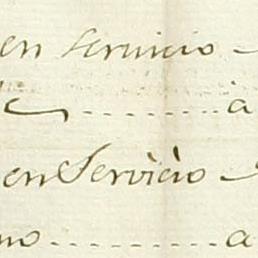 en servicio
a
en Servicio
no a